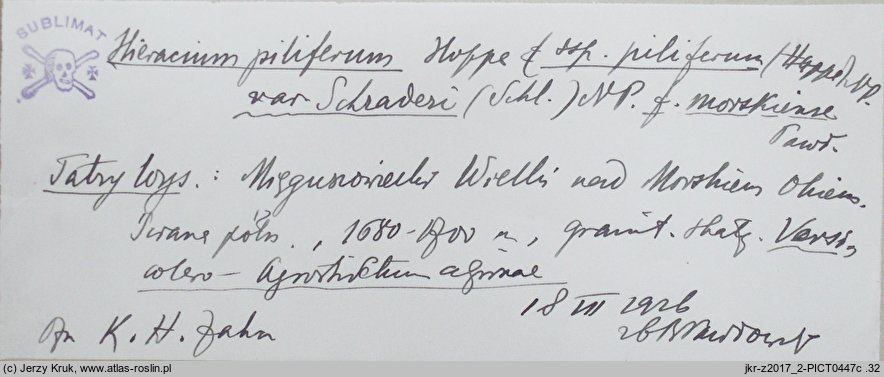 SUBLIMAT
Hieracium piliferum Hoppe ssp. piliferum (Hoppe) NP.
var. Schraderi (Schl.) NP. f. morskiense
Pawł.
Tatry Wys.: Mięguszowiecki Wielki nad Morskiem Okiem.
Ściana półn., 1680-1700 m, granit. skały. Versi-
colero - Agrostidetum alpinae
18 VIII 1926
K. H. Zahn
(c) Jerzy Kruk, www.atlas-roslin.pl
jkr-z2017_2-PICT0447c .32